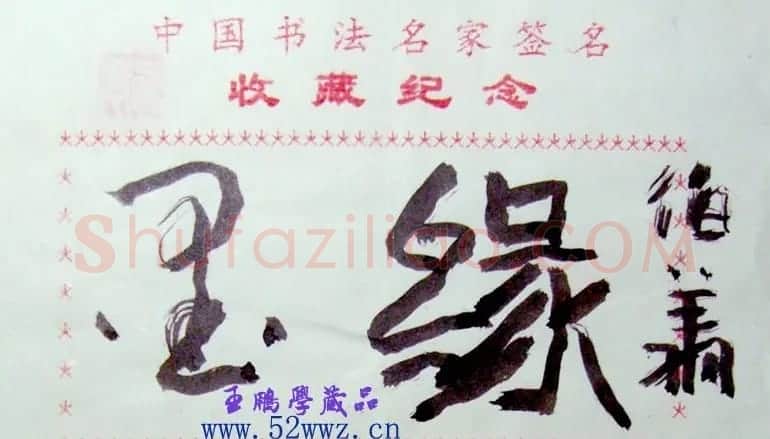 中国书法名家签名
收藏纪念
墨缘
Shufaziliao.COM
王鹏學藏品
www.52wwz.cn